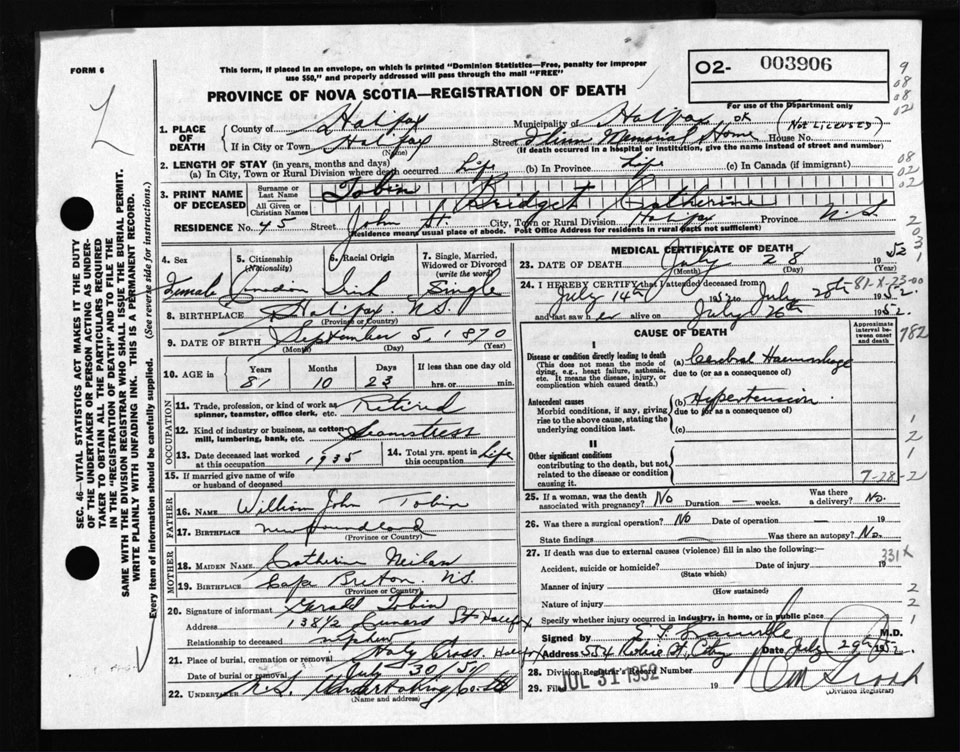 FORM 6
This form, if placed in an envelope, on which is printed "Dominion Statistics—Free, penalty for improper
use $50," and properly addressed will pass through the mail "FREE"
O2- 003906
PROVINCE OF NOVA SCOTIA—REGISTRATION OF DEATH
For use of the Department only
1. PLACE OF DEATH County of Halifax Municipality of Halifax
If in City or Town Halifax (Name) Street Flinn Memorial Home House No. (Not Licensed)
(If death occurred in a hospital or institution, give the name instead of street and number)
2. LENGTH OF STAY (in years, months and days)
(a) In City, Town or Rural Division where death occurred Life (b) In Province Life (c) In Canada (if immigrant)
3. PRINT NAME OF DECEASED Surname or Last Name Tobin
All Given or Christian Names Bridget Catherine
RESIDENCE No. 45 Street John St. City, Town or Rural Division Halifax Province N.S.
(Residence means usual place of abode. Post Office Address for residents in rural parts not sufficient)
4. Sex Female
5. Citizenship (Nationality) Canadian
6. Racial Origin Irish
7. Single, Married, Widowed or Divorced (write the word) Single
8. BIRTHPLACE Halifax N.S.
(Province or Country)
9. DATE OF BIRTH September 5, 1870
(Month) (Day) (Year)
10. AGE in Years 81 Months 10 Days 23 If less than one day old hrs. or min.
OCCUPATION
11. Trade, profession, or kind of work as spinner, teamster, office clerk, etc. Retired
12. Kind of industry or business, as cotton mill, lumbering, bank, etc. Seamstress
13. Date deceased last worked at this occupation 1935
14. Total yrs. spent in this occupation Life
15. If married give name of wife or husband of deceased
FATHER
16. NAME William John Tobin
17. BIRTHPLACE Newfoundland
(Province or Country)
MOTHER
18. MAIDEN NAME Catherine Neilan
19. BIRTHPLACE Cape Breton N.S.
(Province or Country)
20. Signature of informant Gerald Tobin
Address 138½ Cunard St Halifax
Relationship to deceased nephew
21. Place of burial, cremation or removal Holy Cross, Halifax
Date of burial or removal July 30/52
22. UNDERTAKER N.S. Undertaking Co Ltd
(Name and address)
MEDICAL CERTIFICATE OF DEATH
23. DATE OF DEATH July 28 1952
(Month) (Day) (Year)
24. I HEREBY CERTIFY that I attended deceased from
July 14th 1952 to July 28th 1952
and last saw h er alive on July 26th 1952.
CAUSE OF DEATH
Approximate interval between onset and death
I
Disease or condition directly leading to death
(This does not mean the mode of dying, e.g., heart failure, asthenia, etc. It means the disease, injury, or complication which caused death.)
(a) Cerebral Haemorrhage
due to (or as a consequence of)
Antecedent causes
Morbid conditions, if any, giving rise to the above cause, stating the underlying condition last.
(b) Hypertension
due to (or as a consequence of)
(c)
II
Other significant conditions
contributing to the death, but not related to the disease or condition causing it.
7-28-2
25. If a woman, was the death associated with pregnancy? No Duration — weeks. Was there a delivery? No.
26. Was there a surgical operation? No Date of operation — 19
State findings Was there an autopsy? No.
27. If death was due to external causes (violence) fill in also the following:—
331x
Accident, suicide or homicide? Date of injury 19
(State which)
Manner of injury
(How sustained)
Nature of injury
Specify whether injury occurred in industry, in home, or in public place
Signed by M.D.
Address 554 Robie St. City Date July 29th 1952.
28. Division Registrar's Record Number
29. Filed JUL 31 1952 19
(Division Registrar)
SEC. 46—VITAL STATISTICS ACT MAKES IT THE DUTY
OF THE UNDERTAKER OR PERSON ACTING AS UNDER-
TAKER TO OBTAIN ALL THE PARTICULARS REQUIRED
IN THE "REGISTRATION OF DEATH" AND TO FILE THE
SAME WITH THE DIVISION REGISTRAR WHO SHALL ISSUE THE BURIAL PERMIT.
WRITE PLAINLY WITH UNFADING INK. THIS IS A PERMANENT RECORD.
Every item of information should be carefully supplied. (See reverse side for instructions.)